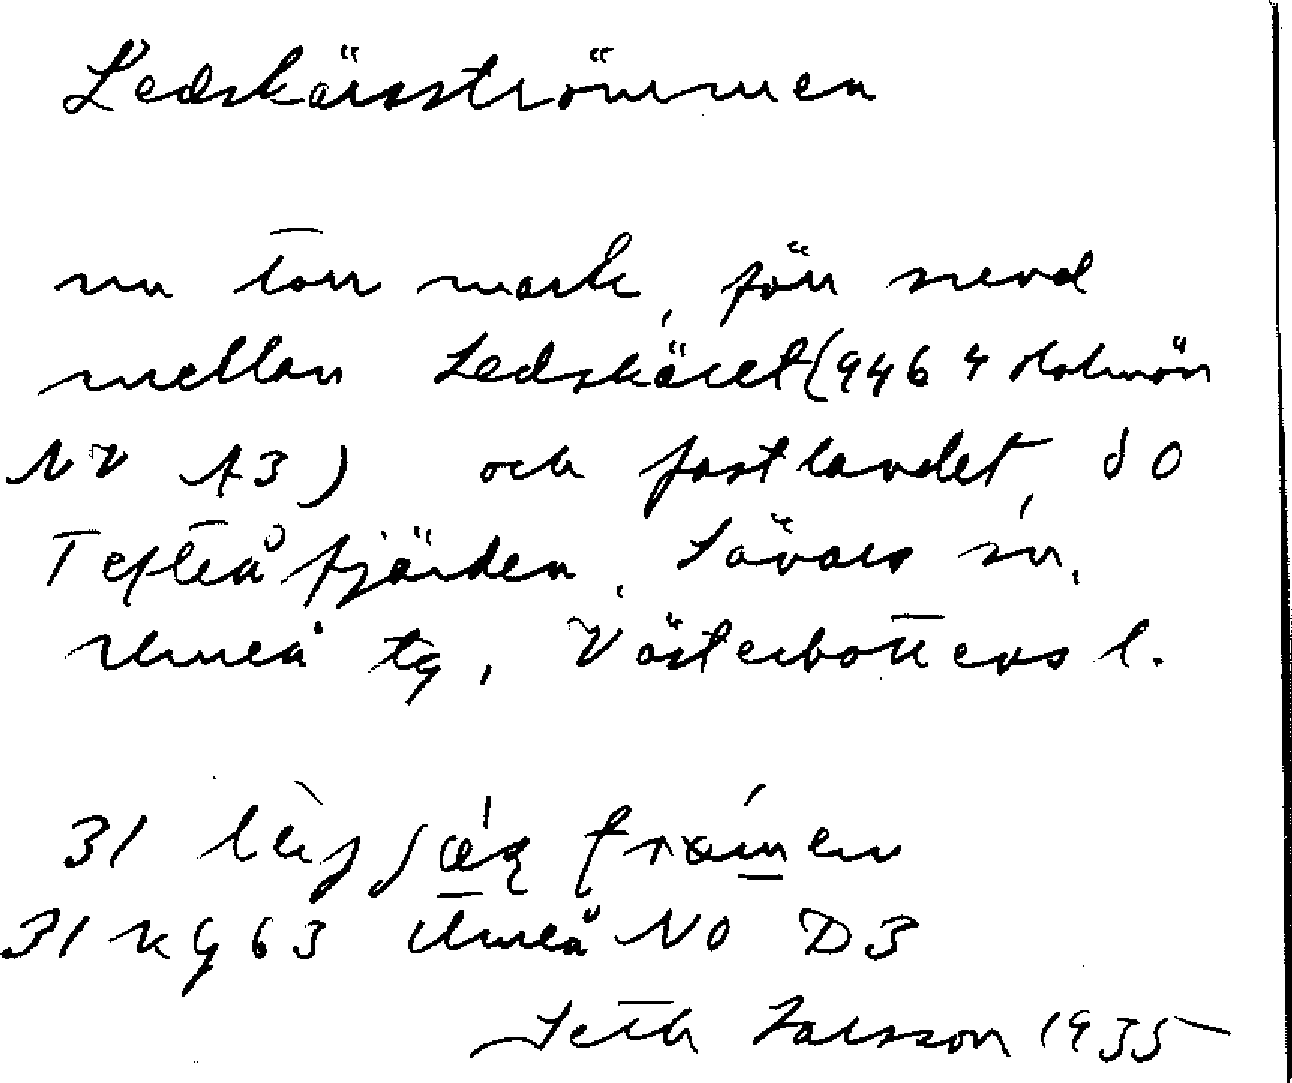 Ledskärsströmmen
nu torr mark, förr sund
mellan Ledskäret (946 4 Holmön
NV A3) och fastlandet, SO
Tefteåfjärden, Sävars sn,
Umeå tg, Västerbottens l.
31
31 kg 63 Umeå NO D3
Seth Larsson 1935